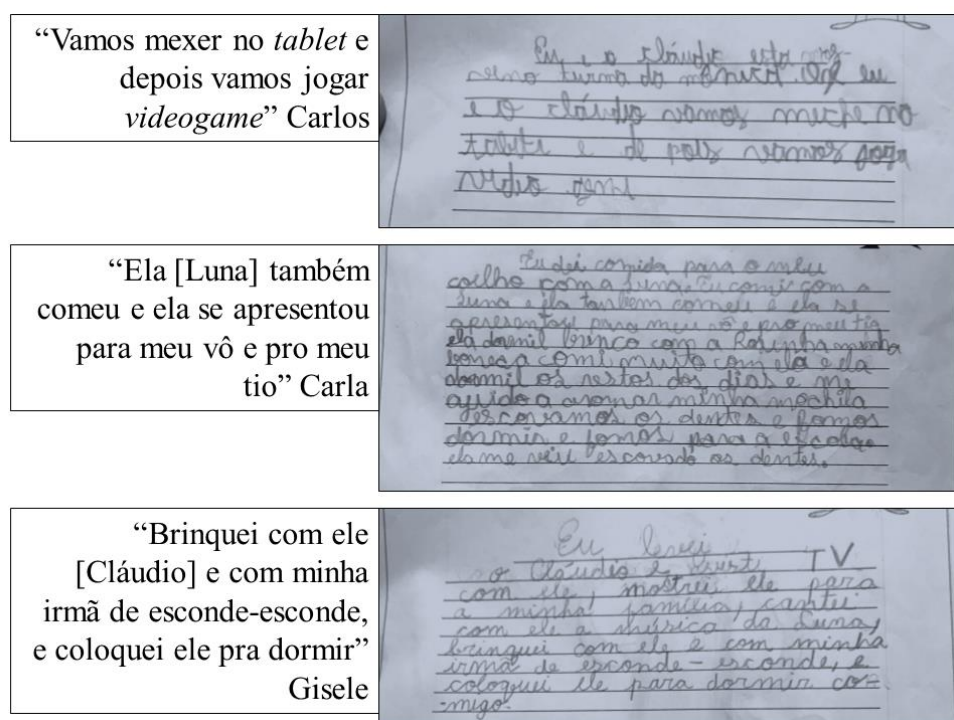 “Vamos mexer no tablet e
depois vamos jogar
videogame” Carlos
Eu, e o cláudio esta
turma do mônica. Oje eu
e o cláudio vamos meche no
e de pois vamos joga
“Ela [Luna] também
comeu e ela se apresentou
para meu vô e pro meu
tio” Carla
Eu dei comida para o meu
coelho com a Luna. Eu comi com a
Luna e ela tanbem comeu e ela se
apresentou para meu vô e pro meu tio
ela dormil brinco com a Rosinha minha
boneca comi muito com ela e ela
dormil os restos dos dias e me
ajudo a aromar minha mochila
escovamos os dentes e fomos
dormir e fomos para a escola
ela me veiu escovado os dentes.
“Brinquei com ele
[Cláudio] e com minha
irmã de esconde-esconde,
e coloquei ele pra dormir”
Gisele
Eu levei
o Cláudio e TV
com ele, mostrei ele para
a minha família, cantei
com ele a música da Luna,
brinquei com ele e com minha
irmã de esconde-esconde, e
coloquei ele para dormir co-
-migo.